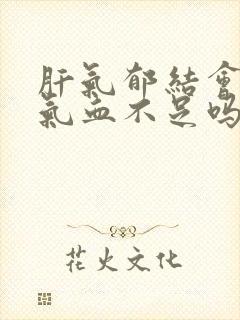 肝氣郁結會
氣血不足嗎
花火文化